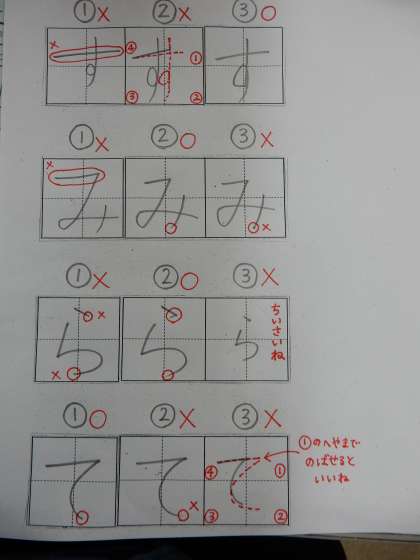 ①× ②× ③○
× す す ④ ① ③ ② す
①× ②○ ③×
× み み み ×
①× ②○ ③×
× × ら ら ら
ちいさいね
①○ ②× ③×
て て × て ④ ① ③ ②
①のへやまで
のばせると
いいね